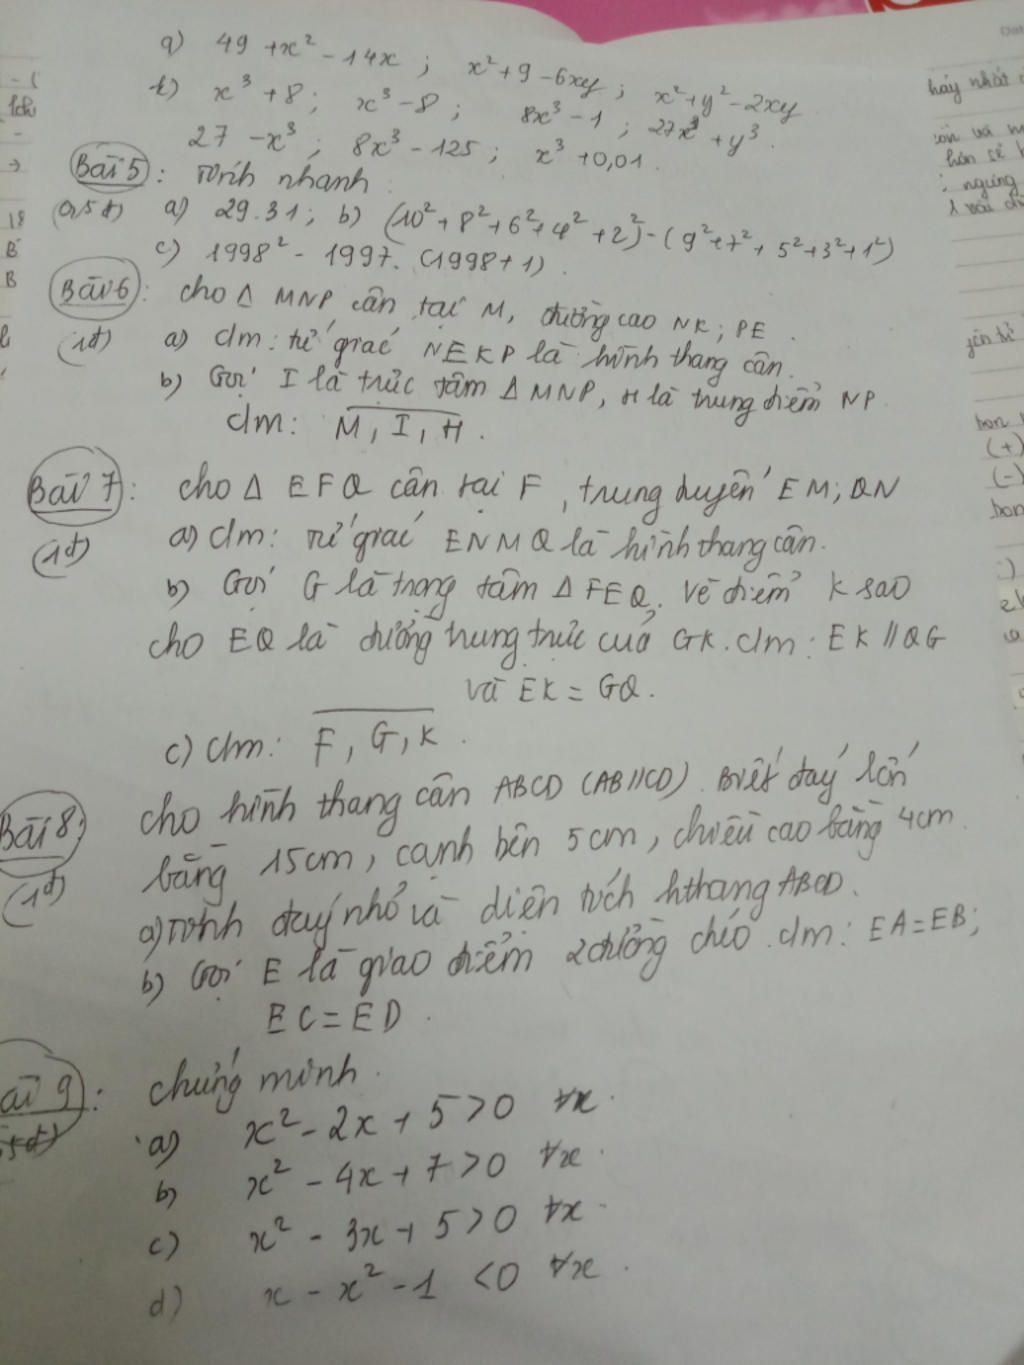 g) 49 + x² - 14x ; x² + 9 - 6xy ; x² + y² - 2xy
h) x³ + 8 ; x³ - 8 ; 8x³ - 1 ; 27x³ + y³.
27 - x³ ; 8x³ - 125 ; x³ + 0,01.
Bài 5 : Tính nhanh
(0,5đ) a) 29.31 ; b) (10² + 8² + 6² + 4² + 2²) - (9² + 7² + 5² + 3² + 1²)
c) 1998² - 1997. (1998 + 1).
Bài 6 : cho Δ MNP cân tại M, đường cao NK ; PE.
(1đ) a) Cm : tứ giác NEKP là hình thang cân.
b) Gọi I là trực tâm Δ MNP, H là trung điểm NP
Cm : M, I, H.
Bài 7 : cho Δ EFQ cân tại F, trung tuyến EM ; QN
(1đ) a) Cm : tứ giác ENMQ là hình thang cân.
b) Gọi G là trọng tâm Δ FEQ. Vẽ điểm K sao
cho EQ là đường trung trực của GK. Cm : EK // QG
và EK = GQ.
c) Cm : F, G, K.
Bài 8 : cho hình thang cân ABCD (AB//CD). Biết đáy lớn
(1đ) bằng 15cm, cạnh bên 5cm, chiều cao bằng 4cm.
a) Tính đáy nhỏ và diện tích hthang ABCD.
b) Gọi E là giao điểm 2 đường chéo. Cm : EA = EB ;
EC = ED.
Bài 9 : chứng minh.
a) x² - 2x + 5 > 0 ∀x.
b) x² - 4x + 7 > 0 ∀x.
c) x² - 3x + 5 > 0 ∀x.
d) x - x² - 1 < 0 ∀x.